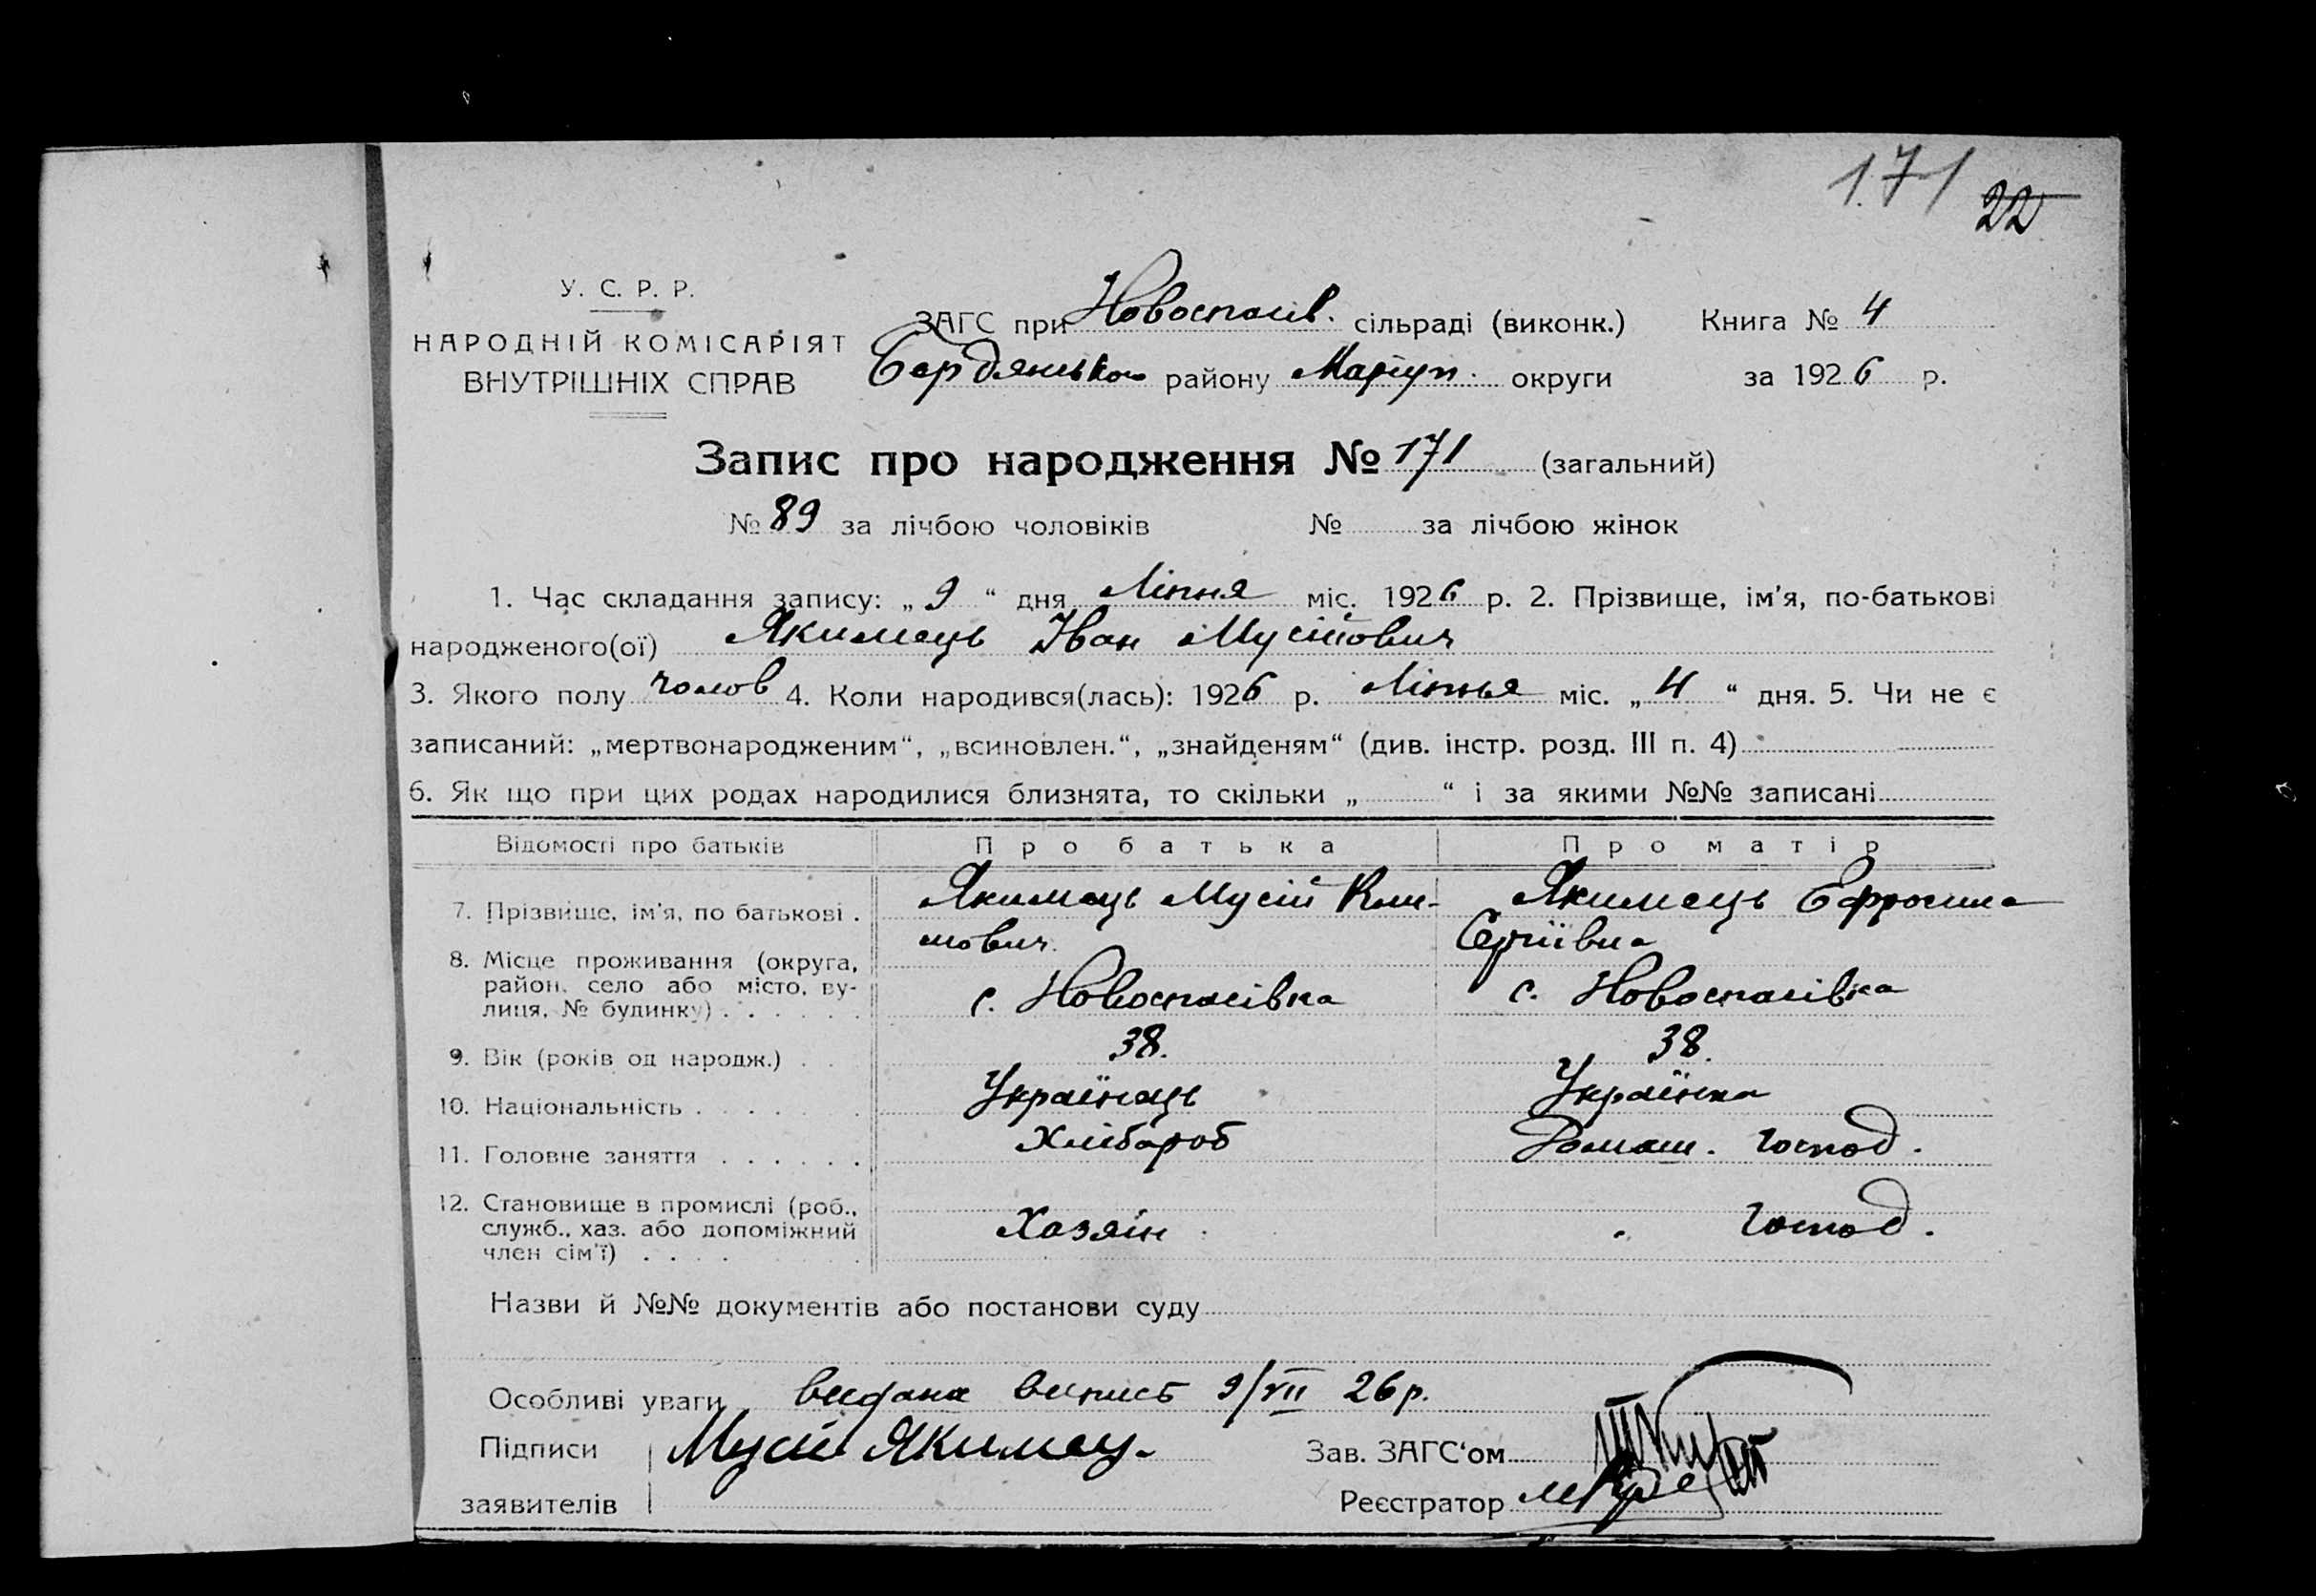 171 22
У. С. Р. Р.
НАРОДНІЙ КОМІСАРІЯТ
ВНУТРІШНІХ СПРАВ
ЗАГС при Новоспасів. сільраді (виконк.) Книга № 4
Бердянсько району Маріуп. округи за 1926 р.
Запис про народження № 171 (загальний)
№ 89 за лічбою чоловіків № за лічбою жінок
1. Час складання запису: „ 9 “ дня Ліпня міс. 1926 р. 2. Прізвище, ім'я, по-батькові
народженого(ої) Якимець Іван Мусійович
3. Якого полу чолов 4. Коли народився(лась): 1926 р. Ліпня міс. „ 4 “ дня. 5. Чи не є
записаний: „мертвонародженим“, „всиновлен.“, „знайденям“ (див. інстр. розд. III п. 4)
6. Як що при цих родах народилися близнята, то скільки „ “ і за якими №№ записані
Відомості про батьків Про батька Про матір
7. Прізвище, ім'я, по батькові . Якимець Мусій Кли- Якимець Ефросина
мович Сергіївна
8. Місце проживання (округа,
район, село або місто, ву-
лиця, № будинку) . . . . . . с. Новоспасівка с. Новоспасівка
9. Вік (років од народж.) . . 38. 38.
10. Національність . . . . . . Українець Українка
11. Головне заняття . . . . . . Хлібароб Домаш. господ.
12. Становище в промислі (роб.,
служб., хаз. або допоміжний Хазяін господ.
член сім'ї) . . . .
Назви й №№ документів або постанови суду
Особливі уваги видана випись 9/VII 26 р.
Підписи Мусій Якимец Зав. ЗАГС'ом
заявителів Реєстратор